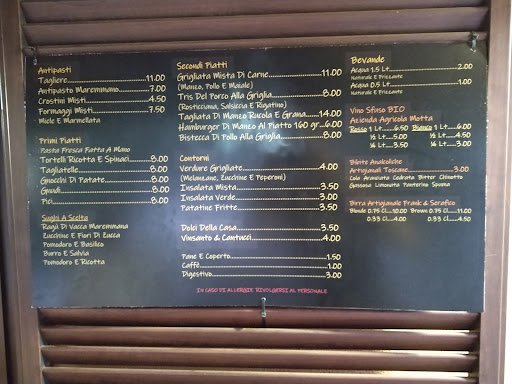 Antipasti
Tagliere 11.00
Antipasto Maremmano 7.00
Crostini Misti 4.50
Formaggi Misti 7.50
Miele E Marmellata
Primi Piatti
Pasta Fresca Fatta A Mano
Tortelli Ricotta E Spinaci 8.00
Tagliatelle 8.00
Gnocchi Di Patate 8.00
Gnudi 8.00
Pici 8.00
Sughi A Scelta
Ragù Di Vacca Maremmana
Zucchine E Fiori Di Zucca
Pomodoro E Basilico
Burro E Salvia
Pomodoro E Ricotta
Secondi Piatti
Grigliata Mista Di Carne 11.00
(Manzo, Pollo E Maiale)
Tris Del Porco Alla Griglia 8.00
(Rosticciana, Salsiccia E Rigatino)
Tagliata Di Manzo Rucola E Grana 14.00
Hamburger Di Manzo Al Piatto 160 gr 6.00
Bistecca Di Pollo Alla Griglia 8.00
Contorni
Verdure Grigliate 4.00
(Melanzane, Zucchine E Peperoni)
Insalata Mista 3.50
Insalata Verde 3.00
Patatine Fritte 3.50
Dolci Della Casa 3.50
Vinsanto & Cantucci 4.00
Pane E Coperto 1.50
Caffè 1.00
Digestivo 3.00
IN CASO DI ALLERGIE RIVOLGERSI AL PERSONALE
Bevande
Acqua 1.5 Lt 2.00
Naturale E Frizzante
Acqua 0.5 Lt 1.00
Naturale E Frizzante
Vino Sfuso BIO
Azienda Agricola Motta
Rosso 1 Lt 6.50 Bianco 1 Lt 6.00
½ Lt 5.00 ½ Lt 4.50
¼ Lt 3.50 ¼ Lt 3.00
Bibite Analcoliche
Artigianali Toscane 3.00
Cola Aranciata Cedrata Bitter Chinotto
Gassosa Limonata Panterino Spuma
Birra Artigianale Frank & Serafico
Blonde 0.75 Cl 10.00 Brown 0.75 Cl 11.00
0.33 Cl 4.00 0.33 Cl 4.50